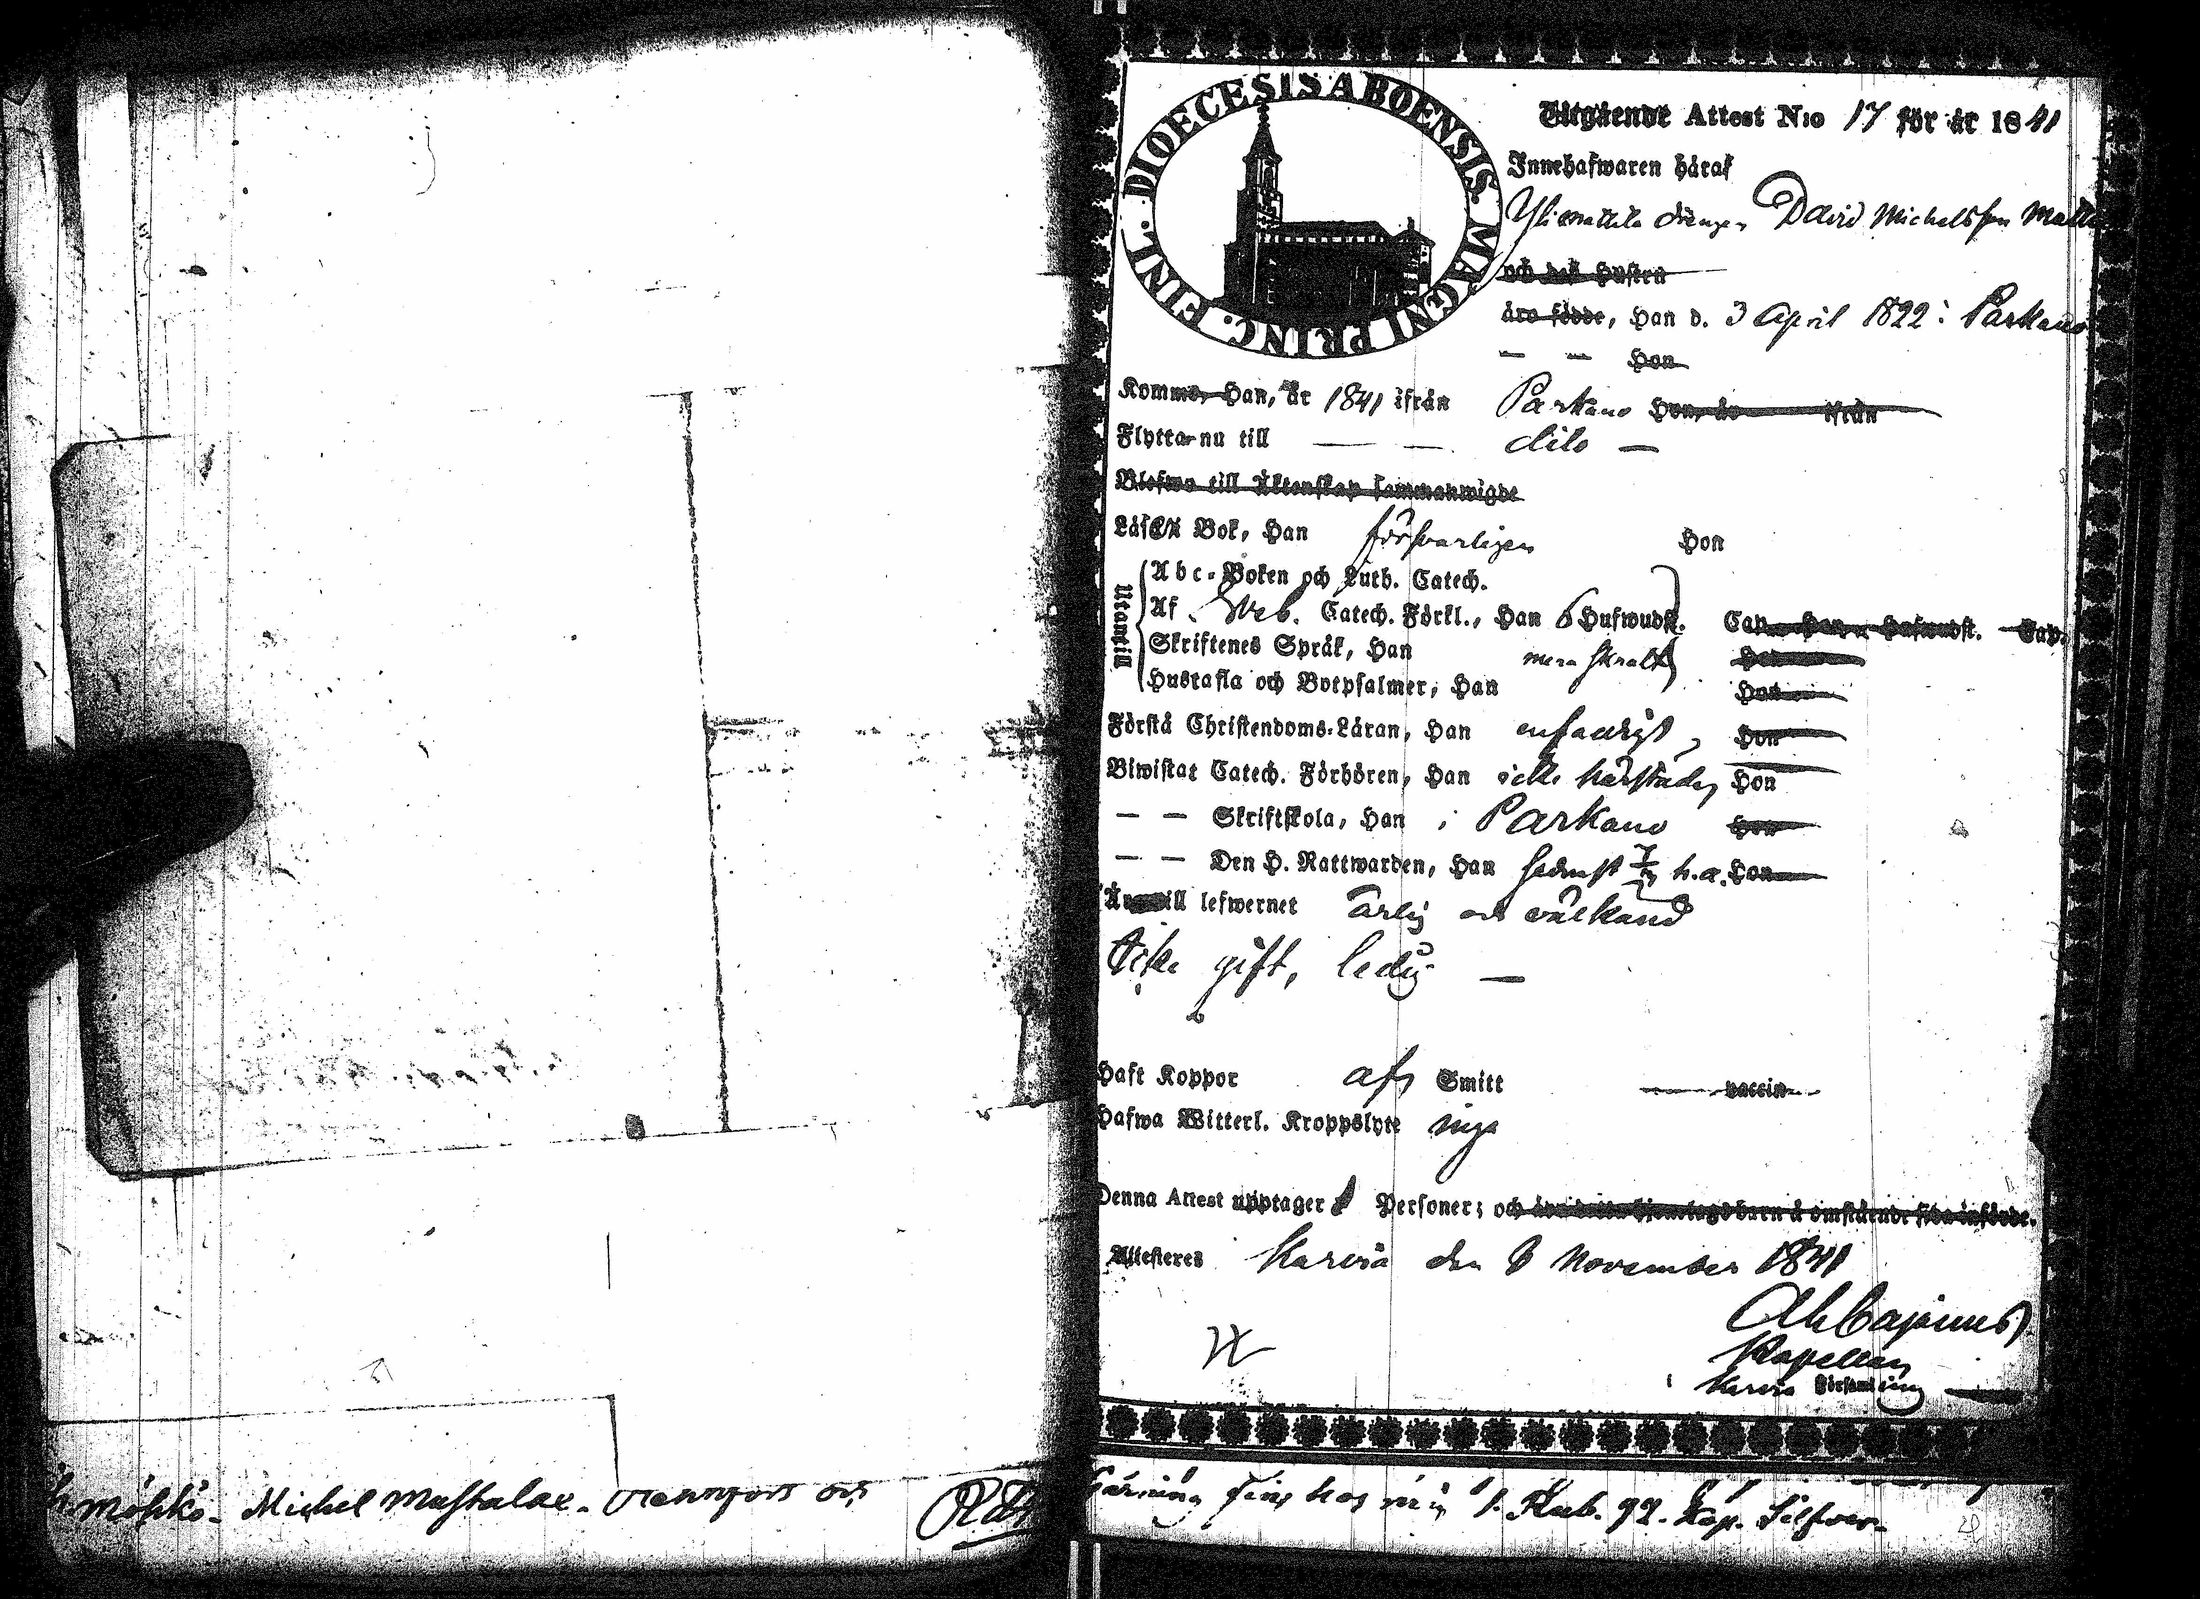 DIOECESIS ABOENSIS. MAGNI PRINC. FINL.
Utgående Attest N:o 17 för år 1841
Innehafwaren häraf
Ylimattila drängen David Michelsson
och des hustru
äro födde, Han d. 3 April 1822 i Parkano
— — Hon
Kommo, Han, år 1841 ifrån Parkano Hon, år ifrån
Flytta nu till — — dito —
Blefwo till Äktenskap sammanwigde
Läsa i Bok, Han försvarligen Hon
Utantill
Abc-Boken och Luth. Catech.
Af Sveb. Catech. Förkl., Han 6 Hufwudst. Cap. Hon Hufwudst. Cap.
Skriftenes Språk, Han Hon
Hustafla och Botpsalmer, Han Hon
Förstå Christendoms-Läran, Han enfaldigt, Hon
Biwistat Catech. Förhören, Han icke härstädes Hon
— — Skriftskola, Han i Parkano Hon
— — Den H. Nattwarden, Han sednast h.a. Hon
Äro till lefwernet ärlig och välkänd
Icke gift, ledig —
Haft Koppor af Smitt vaccin
Hafwa Witterl. Kroppslyte inga
Denna Attest upptager 1 Personer; och deras hemtagsbarn å omstående sida införde.
Attesteres Karvia den 8 November 1841
Cajanus
Kapellan
i Karvia Församling
möhkö. Michel Mustalax.
hos mig Rub. 92. Kop. Silfver.